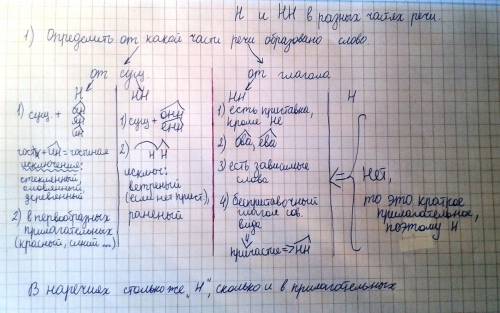 Н и НН в разных частях речи.
1) Определить от какой части речи образовано слово.
от сущ.
от глагола
Н
1) сущ. +
ан
ян
ин
гость + ин = гостиная
исключения:
стеклянный
оловянный
деревянный
2) в первобразных
прилагательных
(красный, синий ...)
НН
1) сущ + онн
енн
2) Н Н
исключ:
ветреный
(если нет прист),
раненый
НН
1) есть приставка,
кроме не
2) ова, ева
3) есть зависимые
слова
4) бесприставочный
глагол сов.
вида
причастие => НН
Н
Нет,
то это краткое
прилагательное,
поэтому Н
В наречиях столько же „Н", сколько и в прилагательных